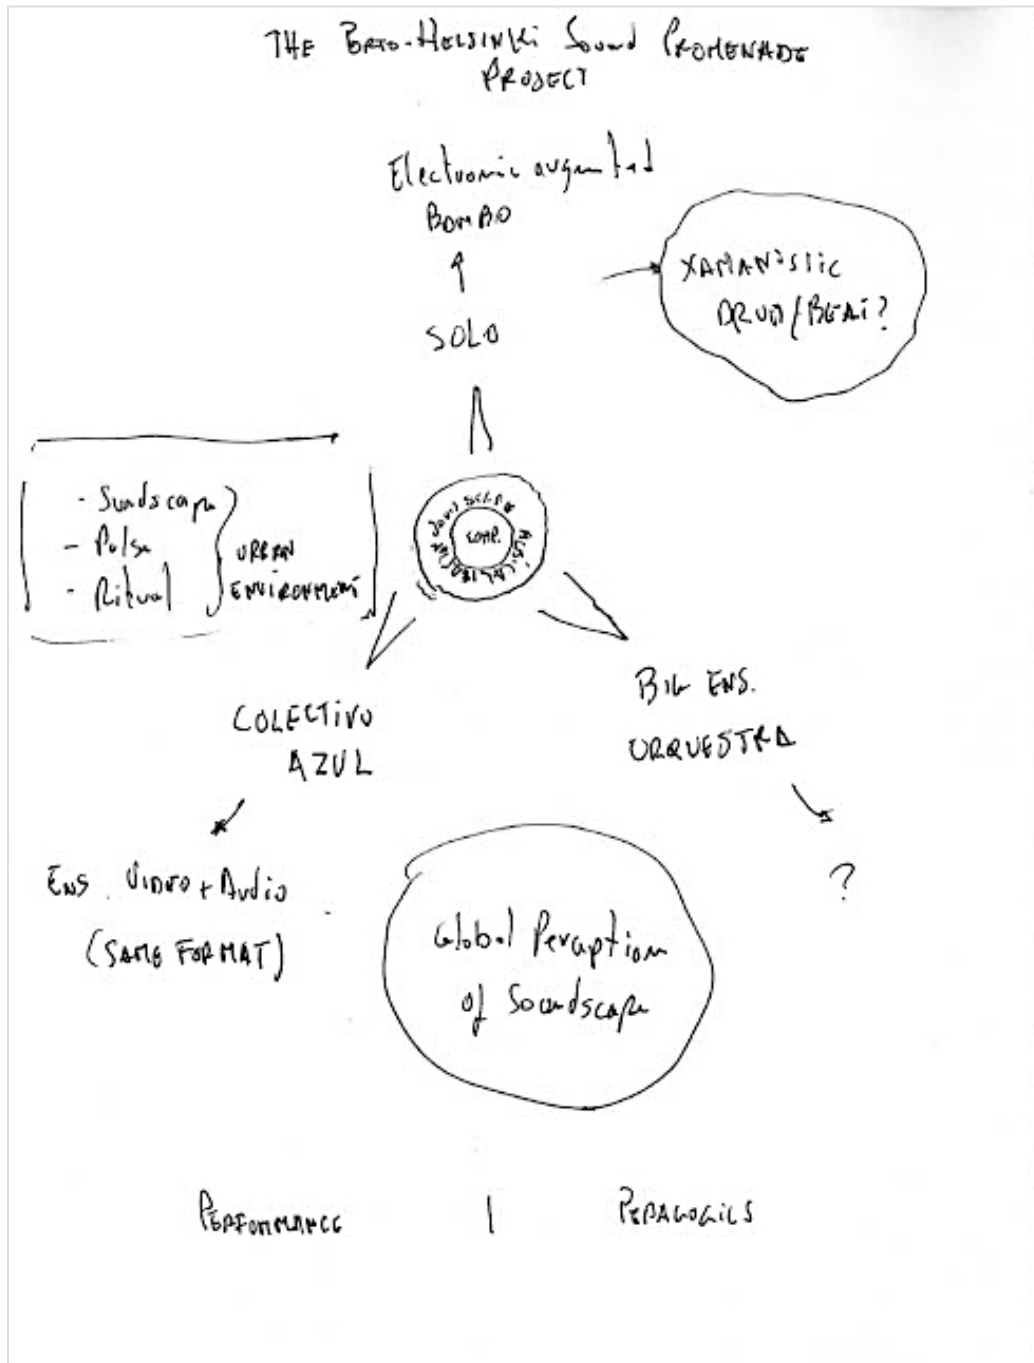 THE PORTO-HELSINKI Sound PROMENADE
PROJECT
Electronic augmented
BOMBO
SOLO
XAMANISTIC
DRUM/BEAT?
- Sundscape
- Pulse
- Ritual
URBAN
ENVIRONMENT
SOUNDSCAPE
MUSICAL
COMP.
COLECTIVO
AZUL
BIG ENS.
ORQUESTRA
ENS. VIDEO + Audio
(SAME FORMAT)
?
Global Perception
of Soundscape
PERFORMANCE | PEDAGOGICS